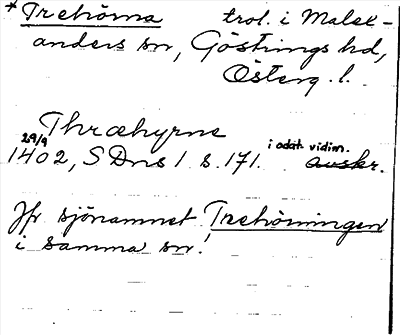 *Trehörna trol. i Malex-
anders sn, Göstrings hd,
Österg. l.
Thræhyrne
29/9 1402, SDns 1 s. 171. i odat. vidim. avskr.
Jfr sjönamnet Trehörningen
i samma sn!